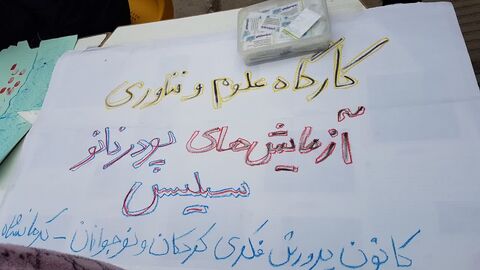 کارگاه علوم و فناوری
آزمایش‌های پودر نانو
سیلیس
کانون پرورش فکری کودکان و نوجوانان - کرمانشاه